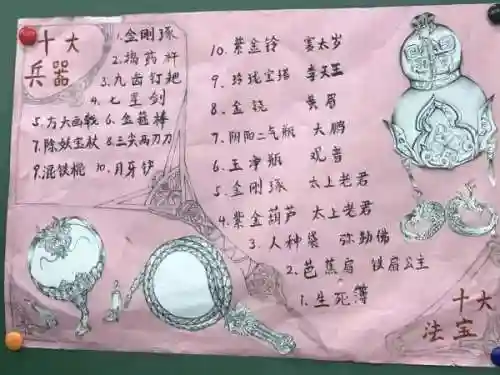 十大
兵器
1.金刚琢
2.捣药杵
3.九齿钉耙
4.七星剑
5.方天画戟 6.金箍棒
7.降妖宝杖 8.三尖两刃刀
9.混铁棍 10.月牙铲
10.紫金铃 赛太岁
9.玲珑宝塔 李天王
8.金铙 黄眉
7.阴阳二气瓶 大鹏
6.玉净瓶 观音
5.金刚琢 太上老君
4.紫金葫芦 太上老君
3.人种袋 弥勒佛
2.芭蕉扇 铁扇公主
1.生死簿
十大
法宝